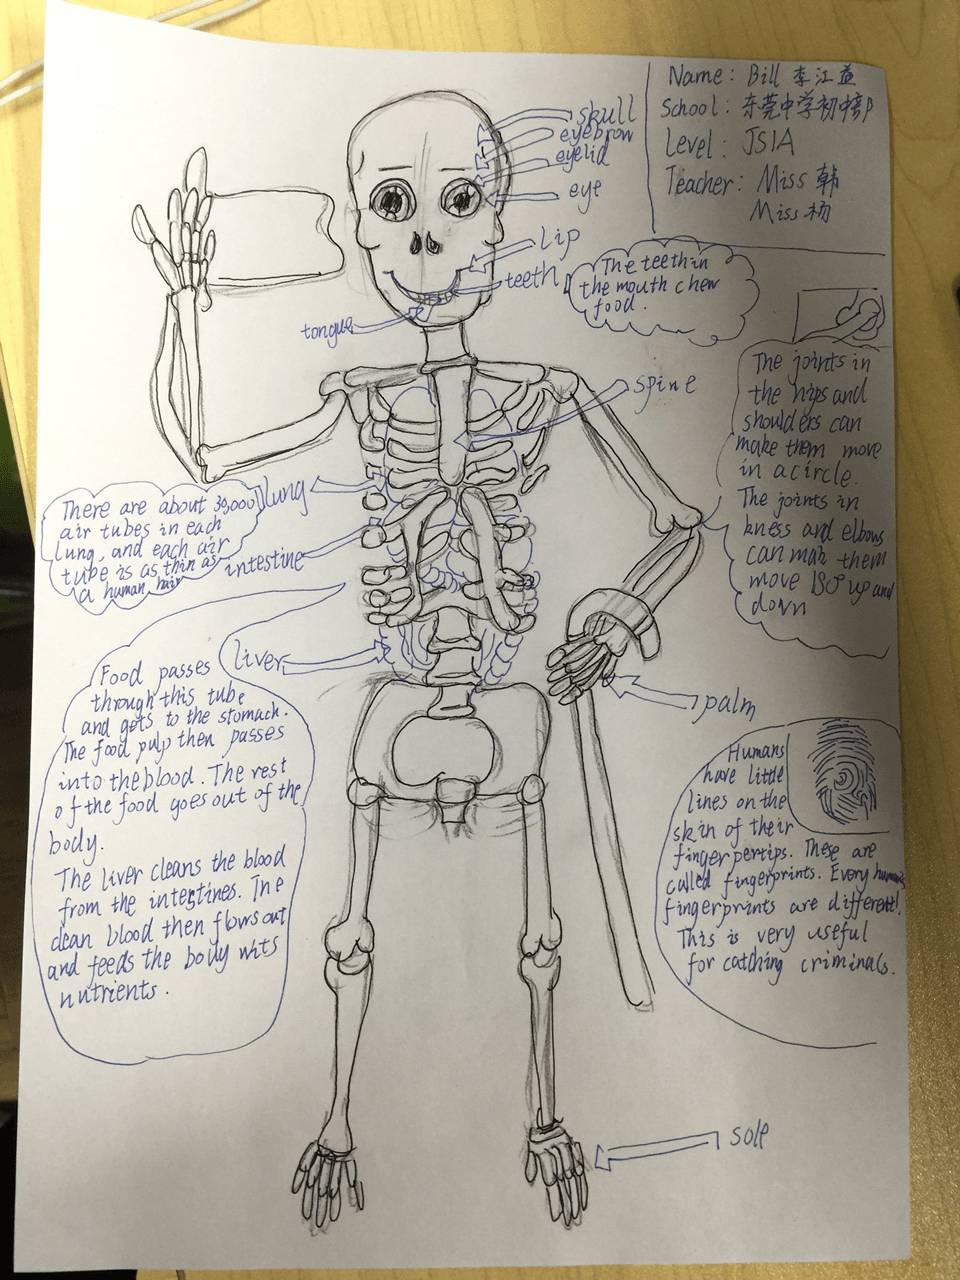 Name: Bill 李江益
School: 东莞中学初中部
Level: JS1A
Teacher: Miss 韩
Miss 杨
skull
eyebrow
eyelid
eye
Lip
teeth
tongue
The teeth in
the mouth chew
food.
spine
The joints in
the hips and
shoulders can
make them move
in a circle.
The joints in
kness and elbows
can mak them
move 180° up and
down
lung
There are about 30,000
air tubes in each
lung, and each air
tube is as thin as
a human hair
intestine
liver
Food passes
through this tube
and gets to the stomach.
The food pulp then passes
into the blood. The rest
of the food goes out of the
body.
The liver cleans the blood
from the intestines. The
clean blood then flows out
and feeds the body wits
nutrients.
palm
Humans
have little
lines on the
skin of their
fingerpertips. These are
called fingerprints. Every human's
fingerprints are different!
This is very useful
for catching criminals.
sole